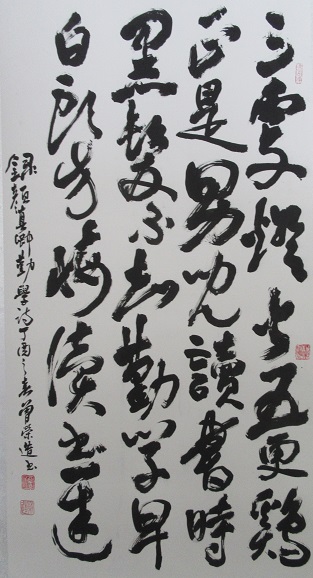 三更燈火五更鷄
正是男兒讀書時
黑髮不知勤學早
白頭方悔讀書遲
録顏真卿勤學詩丁酉之春曾榮造書